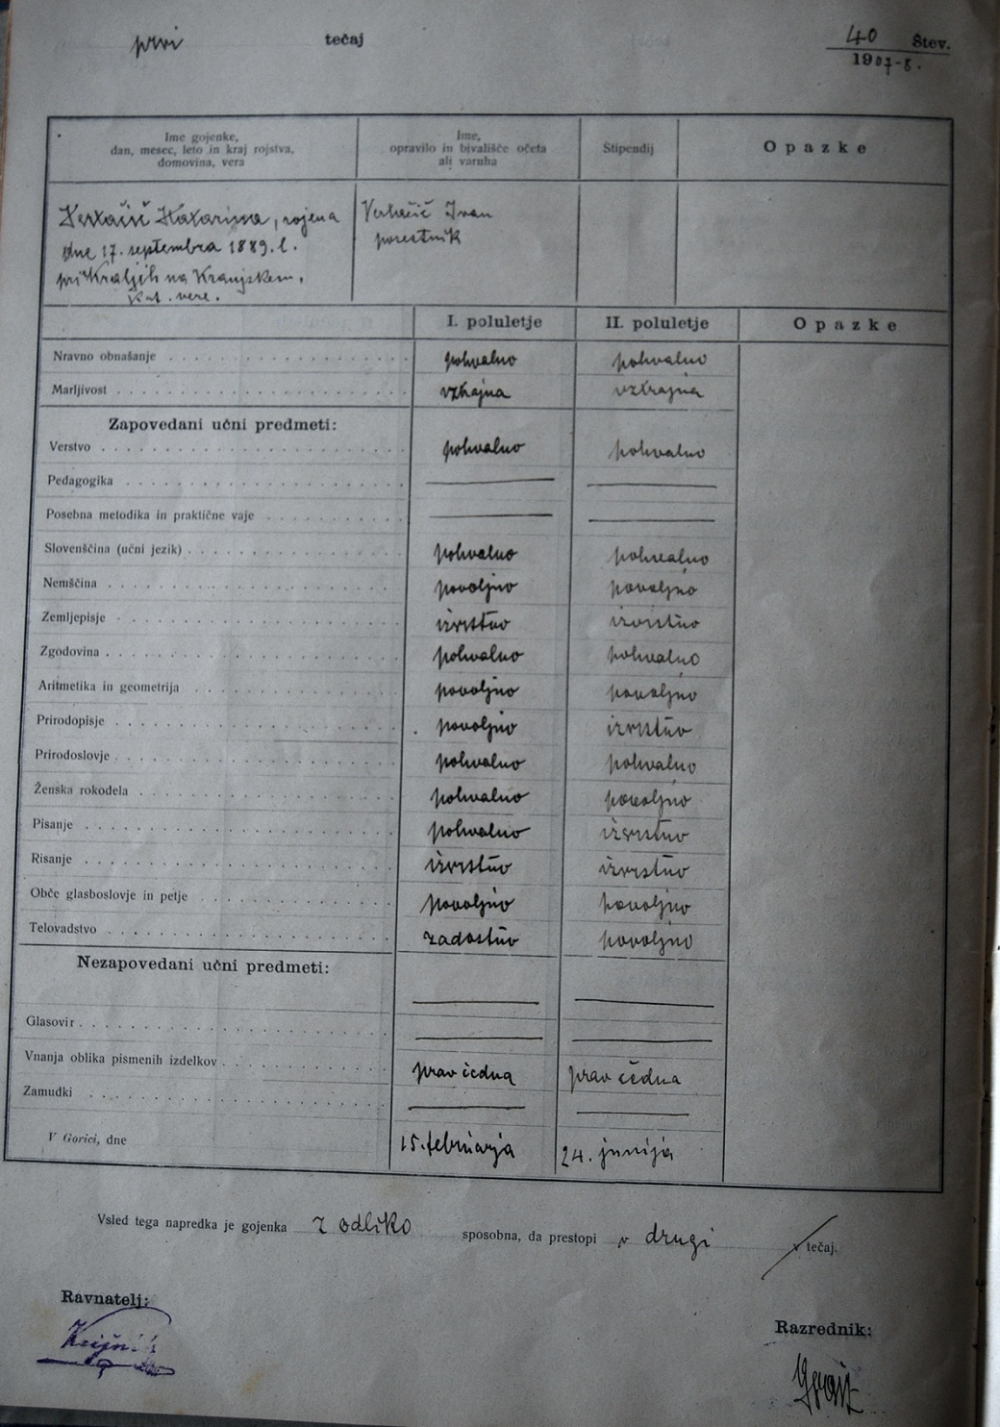 prvi tečaj
40 Štev.
1907-8.
Ime gojenke,
dan, mesec, leto in kraj rojstva,
domovina, vera
Ime,
opravilo in bivališče očeta
ali varuha
Štipendij
Opazke
Katarina, rojena
dne 17. septembra 1889. l.
pri Kraljih na Kranjskem.
kat. vere.
Ivan
posestnik
I. poluletje II. poluletje Opazke
Nravno obnašanje pohvalno pohvalno
Marljivost vztrajna vztrajna
Zapovedani učni predmeti:
Verstvo pohvalno pohvalno
Pedagogika
Posebna metodika in praktične vaje
Slovenščina (učni jezik) pohvalno pohvalno
Nemščina povoljno povoljno
Zemljepisje izvrstno izvrstno
Zgodovina pohvalno pohvalno
Aritmetika in geometrija povoljno povoljno
Prirodopisje povoljno izvrstno
Prirodoslovje pohvalno pohvalno
Ženska rokodela pohvalno povoljno
Pisanje pohvalno izvrstno
Risanje izvrstno izvrstno
Obče glasboslovje in petje povoljno povoljno
Telovadstvo zadostno povoljno
Nezapovedani učni predmeti:
Glasovir
Vnanja oblika pismenih izdelkov prav čedna prav čedna
Zamudki
V Gorici, dne 15. februarja 24. junija
Vsled tega napredka je gojenka z odliko sposobna, da prestopi v drugi v tečaj.
Ravnatelj:
Razrednik: